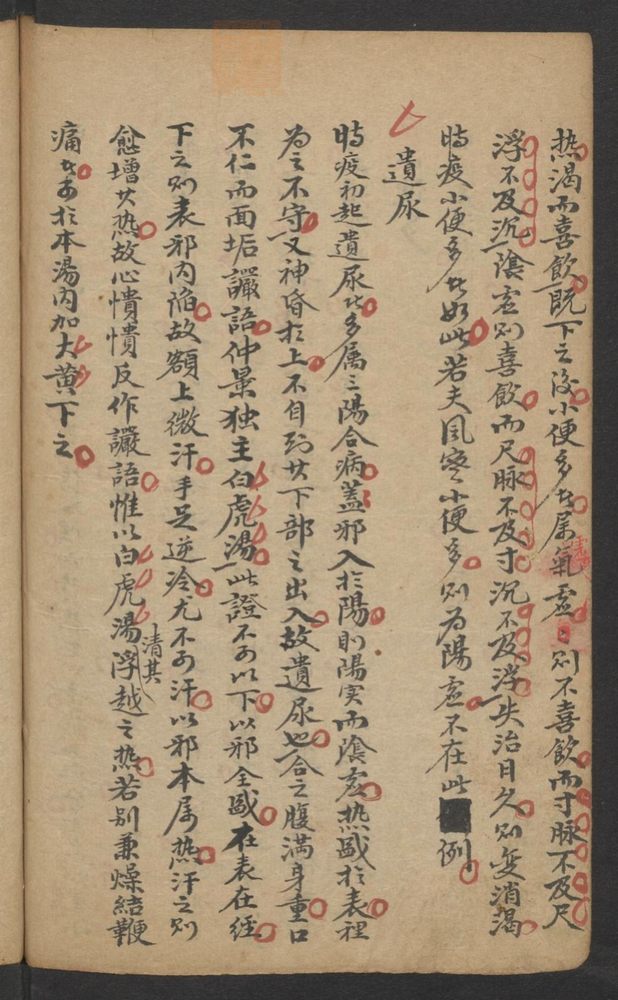 热渴而喜飲既下之後小便多者属氣虚日则不喜飲而寸脉不及尺
浮不及沉陰虚则喜飲而尺脉不及寸沉不及浮失治日久则变消渴
时疫小便多者如此若夫風寒小便多则為陽虚不在此例
遺尿
时疫初起遺尿者多属三陽合病盖邪入於陽則陽实而陰虚热盛於表裡
為之不守又神昏於上不自知其下部之出入故遺尿也合之腹满身重口
不仁而面垢讝語仲景独主白虎湯此證不可以下以邪全盛在表在經
下之则表邪内陷故額上微汗手足逆冷尤不可汗以邪本属热汗之则
愈增其热故心憒憒反作讝語惟以白虎湯清其浮越之热若别兼燥結鞕
痛者可於本湯内加大黄下之